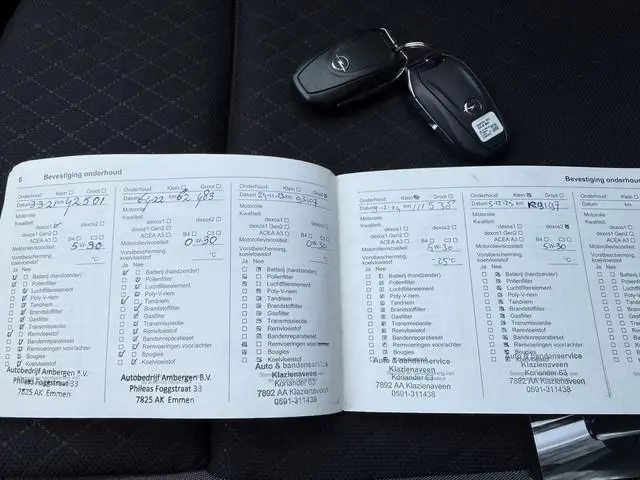 6 Bevestiging onderhoud
Onderhoud: Klein Groot
Datum 9-9-21 km 42501
Motorolie
Kwaliteit:
dexos1 dexos2
dexos1 Gen2
ACEA A3 B4 C3
Motorolieviscositeit 5W-30
Vorstbescherming, koelvloeistof °C
Ja Nee
Batterij (handzender)
Pollenfilter
Luchtfilterelement
Poly-V-riem
Tandriem
Brandstoffilter
Gasfilter
Transmissie
Remvloeistof
Bandenreparatieset
Remvoeringen voor/achter
Bougies
Koelvloeistof
Autobedrijf Ambergen B.V.
Phileas Foggstraat 33
7825 AK Emmen
Onderhoud: Klein Groot
Datum km 62 483
Motorolie
Kwaliteit:
dexos1 dexos2
dexos1 Gen2
ACEA A3 B4 C3
Motorolieviscositeit 0W-30
Vorstbescherming, koelvloeistof °C
Ja Nee
Batterij (handzender)
Pollenfilter
Luchtfilterelement
Poly-V-riem
Tandriem
Brandstoffilter
Gasfilter
Transmissie
Remvloeistof
Bandenreparatieset
Remvoeringen voor/achter
Bougies
Koelvloeistof
Autobedrijf Ambergen B.V.
Phileas Foggstraat 33
7825 AK Emmen
Onderhoud: Klein Groot
Datum 24-11-23 km
Motorolie
Kwaliteit:
dexos1 dexos2
dexos1 Gen2
ACEA A3 B4 C3
Motorolieviscositeit 0W-30
Vorstbescherming, koelvloeistof °C
Ja Nee
Batterij (handzender)
Pollenfilter
Luchtfilterelement
Poly-V-riem
Tandriem
Brandstoffilter
Gasfilter
Transmissie
Remvloeistof
Bandenreparatieset
Remvoeringen voor/achter
Bougies
Koelvloeistof
Auto & bandenservice
Klazienaveen
Koriander 63
7892 AA Klazienaveen
0591-311438
Bevestiging onderhoud
Onderhoud: Klein Groot
Datum km 111538
Motorolie
Kwaliteit:
dexos1 dexos2
dexos1 Gen2
ACEA A3 B4 C3
Motorolieviscositeit 5W-30
Vorstbescherming, koelvloeistof -25°C
Ja Nee
Batterij (handzender)
Pollenfilter
Luchtfilterelement
Poly-V-riem
Tandriem
Brandstoffilter
Gasfilter
Transmissie
Remvloeistof
Bandenreparatieset
Remvoeringen voor/achter
Bougies
Auto & bandenservice
Klazienaveen
Koriander 63
7892 AA Klazienaveen
0591-311438
Onderhoud: Klein Groot
Datum 5-12-25 km
Motorolie
Kwaliteit:
dexos1 dexos2
dexos1 Gen2
ACEA A3 B4 C3
Motorolieviscositeit 5W-30
Vorstbescherming, koelvloeistof °C
Ja Nee
Batterij (handzender)
Pollenfilter
Luchtfilterelement
Poly-V-riem
Tandriem
Brandstoffilter
Gasfilter
Transmissie
Remvloeistof
Bandenreparatieset
Remvoeringen voor/achter
Bougies
Auto & bandenservice
Klazienaveen
Koriander 63
7892 AA Klazienaveen
0591-311438
Onderhoud:
Datum
Motorolie
Kwaliteit:
Ja Nee